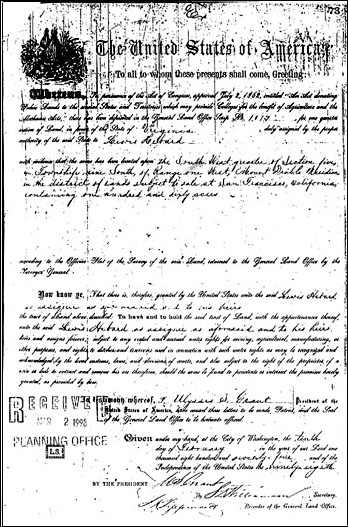 73
The United States of America
To all to whom these presents shall come, Greeting:
Whereas, In pursuance of the Act of Congress, approved July 2, 1862, entitled "An Act donating
Public Lands to the several States and Territories which may provide Colleges for the benefit of Agriculture and the
Mechanic Arts," there has been deposited in the General Land Office Scrip No. for one quarter
section of Land, in favor of the State of Virginia duly assigned by the proper
authority of the said State to Lewis Hebard
with evidence that the same has been located upon the South West quarter of Section five
in Township nine South, of Range one West, Mount Diablo Meridian
in the district of Lands subject to sale at San Francisco, California,
containing one hundred and sixty acres
according to the Official Plat of the Survey of the said Land, returned to the General Land Office by the
Surveyor General.
Now know ye, That there is, therefore, granted by the United States unto the said Lewis Hebard
as assignee as aforesaid and to his heirs
the tract of Land above described: To have and to hold the said tract of Land, with the appurtenances thereof,
unto the said Lewis Hebard as assignee as aforesaid and to his heirs
heirs and assigns forever; subject to any vested and accrued water rights for mining, agricultural, manufacturing, or
other purposes, and rights to ditches and reservoirs used in connection with such water rights as may be recognized and
acknowledged by the local customs, laws, and decisions of courts, and also subject to the right of the proprietor of a
vein or lode to extract and remove his ore therefrom, should the same be found to penetrate or intersect the premises hereby
granted, as provided by law.
In testimony whereof, I Ulysses S. Grant President of the
United States of America, have caused these letters to be made Patent, and the Seal
of the General Land Office to be hereunto affixed.
RECEIVED
2 1993
PLANNING OFFICE
L.S.
Given under my hand, at the City of Washington, the tenth
day of February in the year of our Lord one
thousand eight hundred and seventy five, and of the
Independence of the United States the ninety eighth
BY THE PRESIDENT:
By Secretary.
Recorder of the General Land Office.